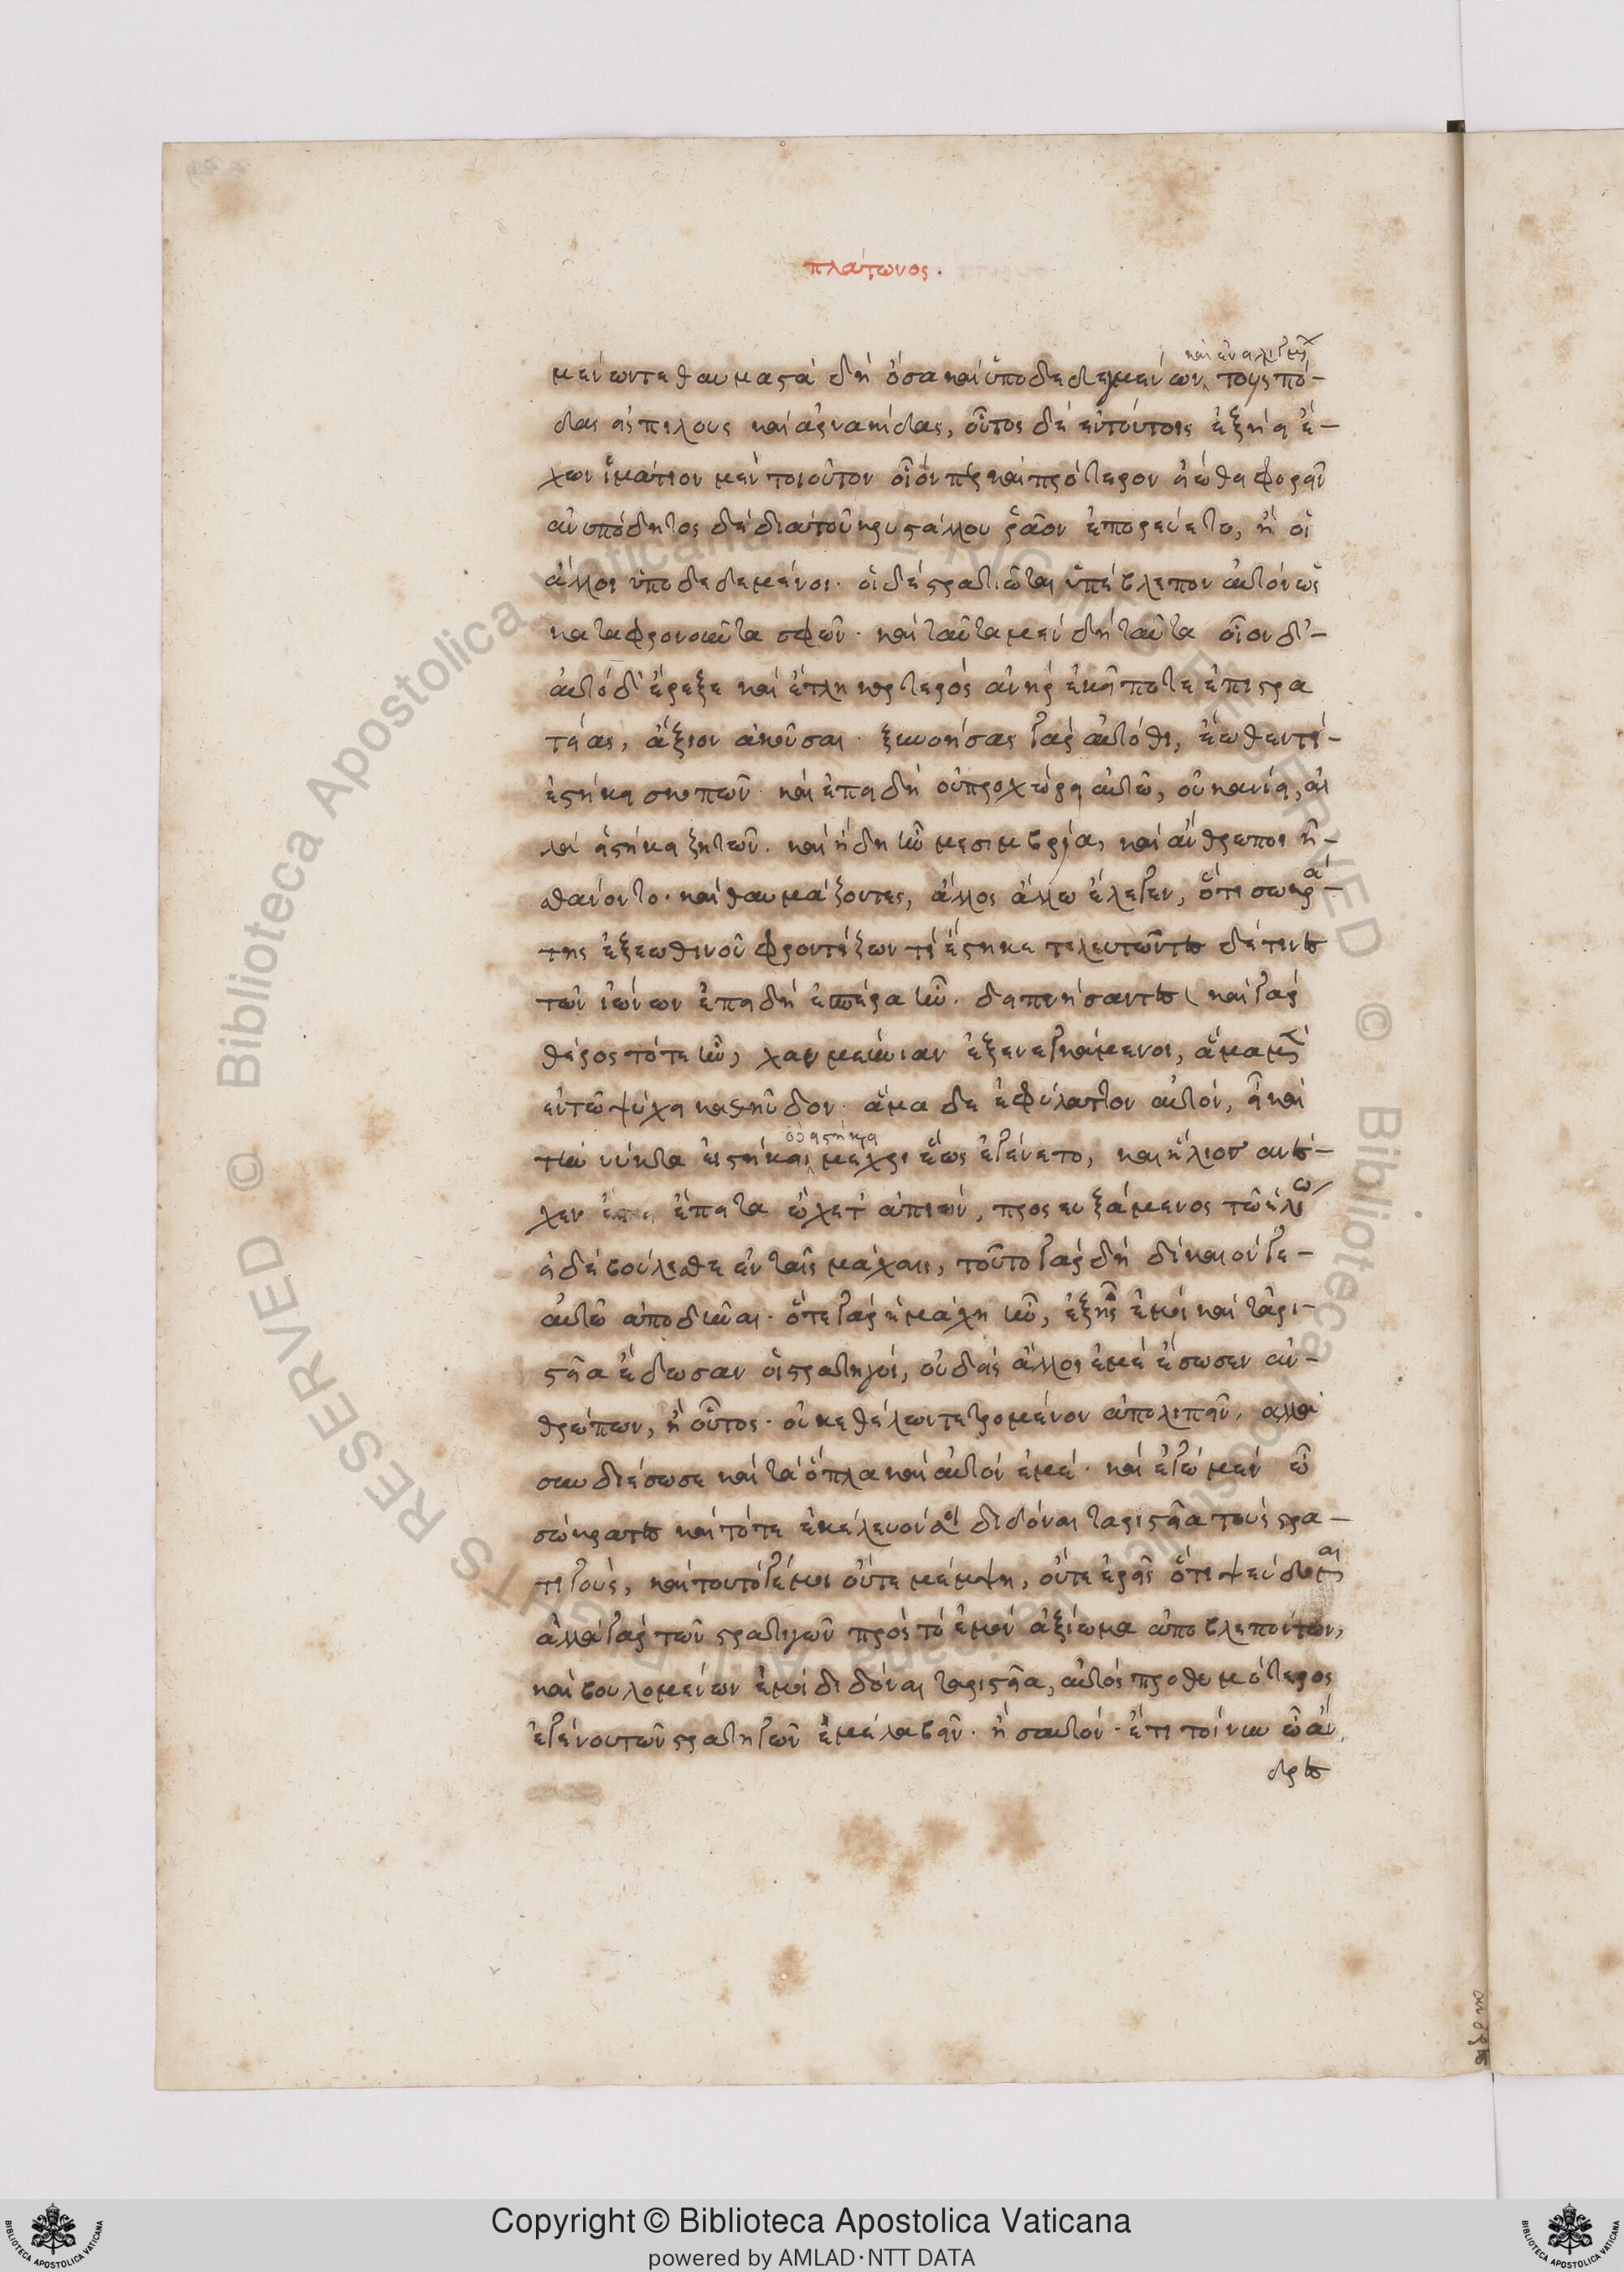 πλάτωνος.
καὶ ἐνειλιγμέ
μένων τε θαυμαστὰ δὴ ὅσα καὶ ὑποδεδεμένων τοὺς πό-
δας εἰς πίλους καὶ ἀρνακίδας, οὗτος δὲ ἐν τούτοις ἐξήει ἔ-
χων ἱμάτιον μὲν τοιοῦτον οἷόνπερ καὶ πρότερον εἰώθει φορεῖν
ἀνυπόδητος δὲ διὰ τοῦ κρυστάλλου ῥᾷον ἐπορεύετο, ἢ οἱ
ἄλλοι ὑποδεδεμένοι· οἱ δὲ στρατιῶται ὑπέβλεπον αὐτὸν ὡς
καταφρονοῦντα σφῶν· καὶ ταῦτα μὲν δὴ ταῦτα οἷον δ'-
αὐτὸ δ' ἔρεξε καὶ ἔτλη καρτερὸς ἀνὴρ ἐκεῖ ποτε ἐπὶ στρα
τείας, ἄξιον ἀκοῦσαι· ξυννοήσας γὰρ αὐτόθι, ἕωθέν τι-
ἑστήκει σκοπῶν· καὶ ἐπειδὴ οὐ προχώρει αὐτῷ, οὐκ ἀνίει, ἀλ
λὰ εἱστήκει ζητῶν. καὶ ἤδη ἦν μεσημβρία, καὶ ἄνθρωποι ᾐ-
σθάνοντο· καὶ θαυμάζοντες, ἄλλος ἄλλῳ ἔλεγεν, ὅτι σωκρά-
της ἐξ ἑωθινοῦ φροντίζων τι ἕστηκε τελευτῶντες δέ τινες
τῶν ἰώνων ἐπειδὴ ἑσπέρα ἦν· δειπνήσαντες καὶ γὰρ
θέρος τότε ἦν, χαμεύνια ἐξενεγκάμενοι, ἅμα μὲν
ἐν τῷ ψύχει καθηῦδον· ἅμα δὲ ἐφύλαττον αὐτόν, εἰ καὶ
ὁ δ' εἱστήκει
τὴν νύκτα ἑστήξει μέχρι ἕως ἐγένετο, καὶ ἥλιον ἀνέ-
χεν ἔπειτα ᾤχετ' ἀπιών, προσευξάμενος τῷ ἡλίῳ
εἰ δὲ βούλεσθε ἐν ταῖς μάχαις, τοῦτο γὰρ δὴ δίκαιόν γε-
αὐτῷ ἀποδοῦναι· ὅτε γὰρ ἡ μάχη ἦν, ἐξ ἧς ἐμοὶ καὶ τἀρι-
στεῖα ἔδωσαν οἱ στρατηγοί, οὐδεὶς ἄλλος ἐμὲ ἔσωσεν ἀν-
θρώπων, ἢ οὗτος· οὐκ ἐθέλων τετρωμένον ἀπολιπεῖν, ἀλλὰ
συνδιέσωσε καὶ τὰ ὅπλα καὶ αὐτὸν ἐμέ· καὶ ἐγὼ μὲν ὦ
σώκρατες καὶ τότε ἐκέλευον σοὶ διδόναι ταριστεῖα τοὺς στρα-
τηγούς, καὶ τοῦτό γέ μοι οὔτε μέμψῃ, οὔτε ἐρεῖς ὅτι ψεύδομαι
ἀλλὰ γὰρ τῶν στρατηγῶν πρὸς τὸ ἐμὸν ἀξίωμα ἀποβλεπόντων,
καὶ βουλομένων ἐμοὶ διδόναι ταριστεῖα, αὐτὸς προθυμότερος
ἐγένου τῶν στρατηγῶν ἐμὲ λαβεῖν· ἢ σαυτόν· ἔτι τοίνυν ὦ ἄν
δρες